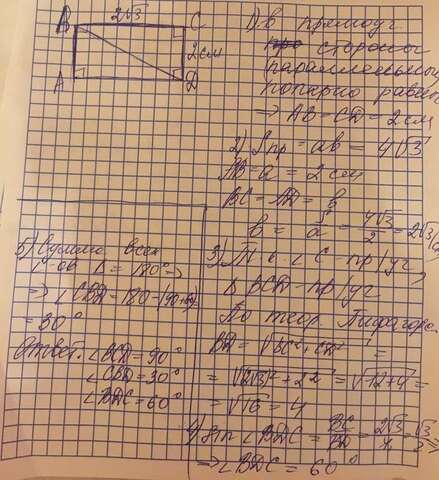 B 2√3 C
2см
A D
1) В прямоуг
стороны
(параллельные)
попарно равны
⇒ AB = CD = 2 см
2) Sпр = ab = 4√3
AB = a = 2 см
BC = AD = b
b = S/a = 4√3/2 = 2√3
3) Т.к. ∠C - пр/уг,
Δ BCD - пр/уг
По теор. Пифагора
BD = √BC²+CD² =
= √(2√3)²+2² = √12+4 =
= √16 = 4
4) sin ∠BDC = BC/BD = 2√3/4 = √3/2 ⇒
⇒ ∠BDC = 60°
5) Сумма всех
∠-ов Δ = 180° ⇒
⇒ ∠CBD = 180-(90+60)
= 30°
Ответ: ∠BCD = 90°
∠CBD = 30°
∠BDC = 60°